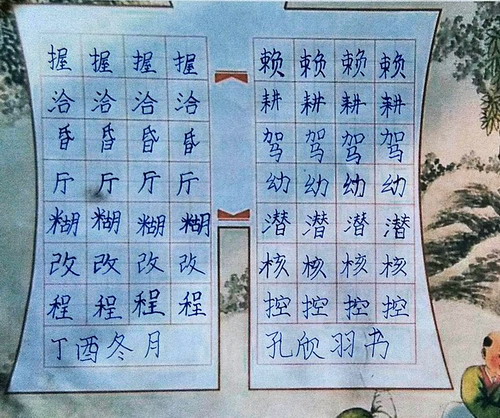 握握握握
洽洽洽洽
昏昏昏昏
厅厅厅厅
糊糊糊糊
改改改改
程程程程
丁酉冬月
赖赖赖赖
耕耕耕耕
驾驾驾驾
幼幼幼幼
潜潜潜潜
核核核核
控控控控
孔欣羽书